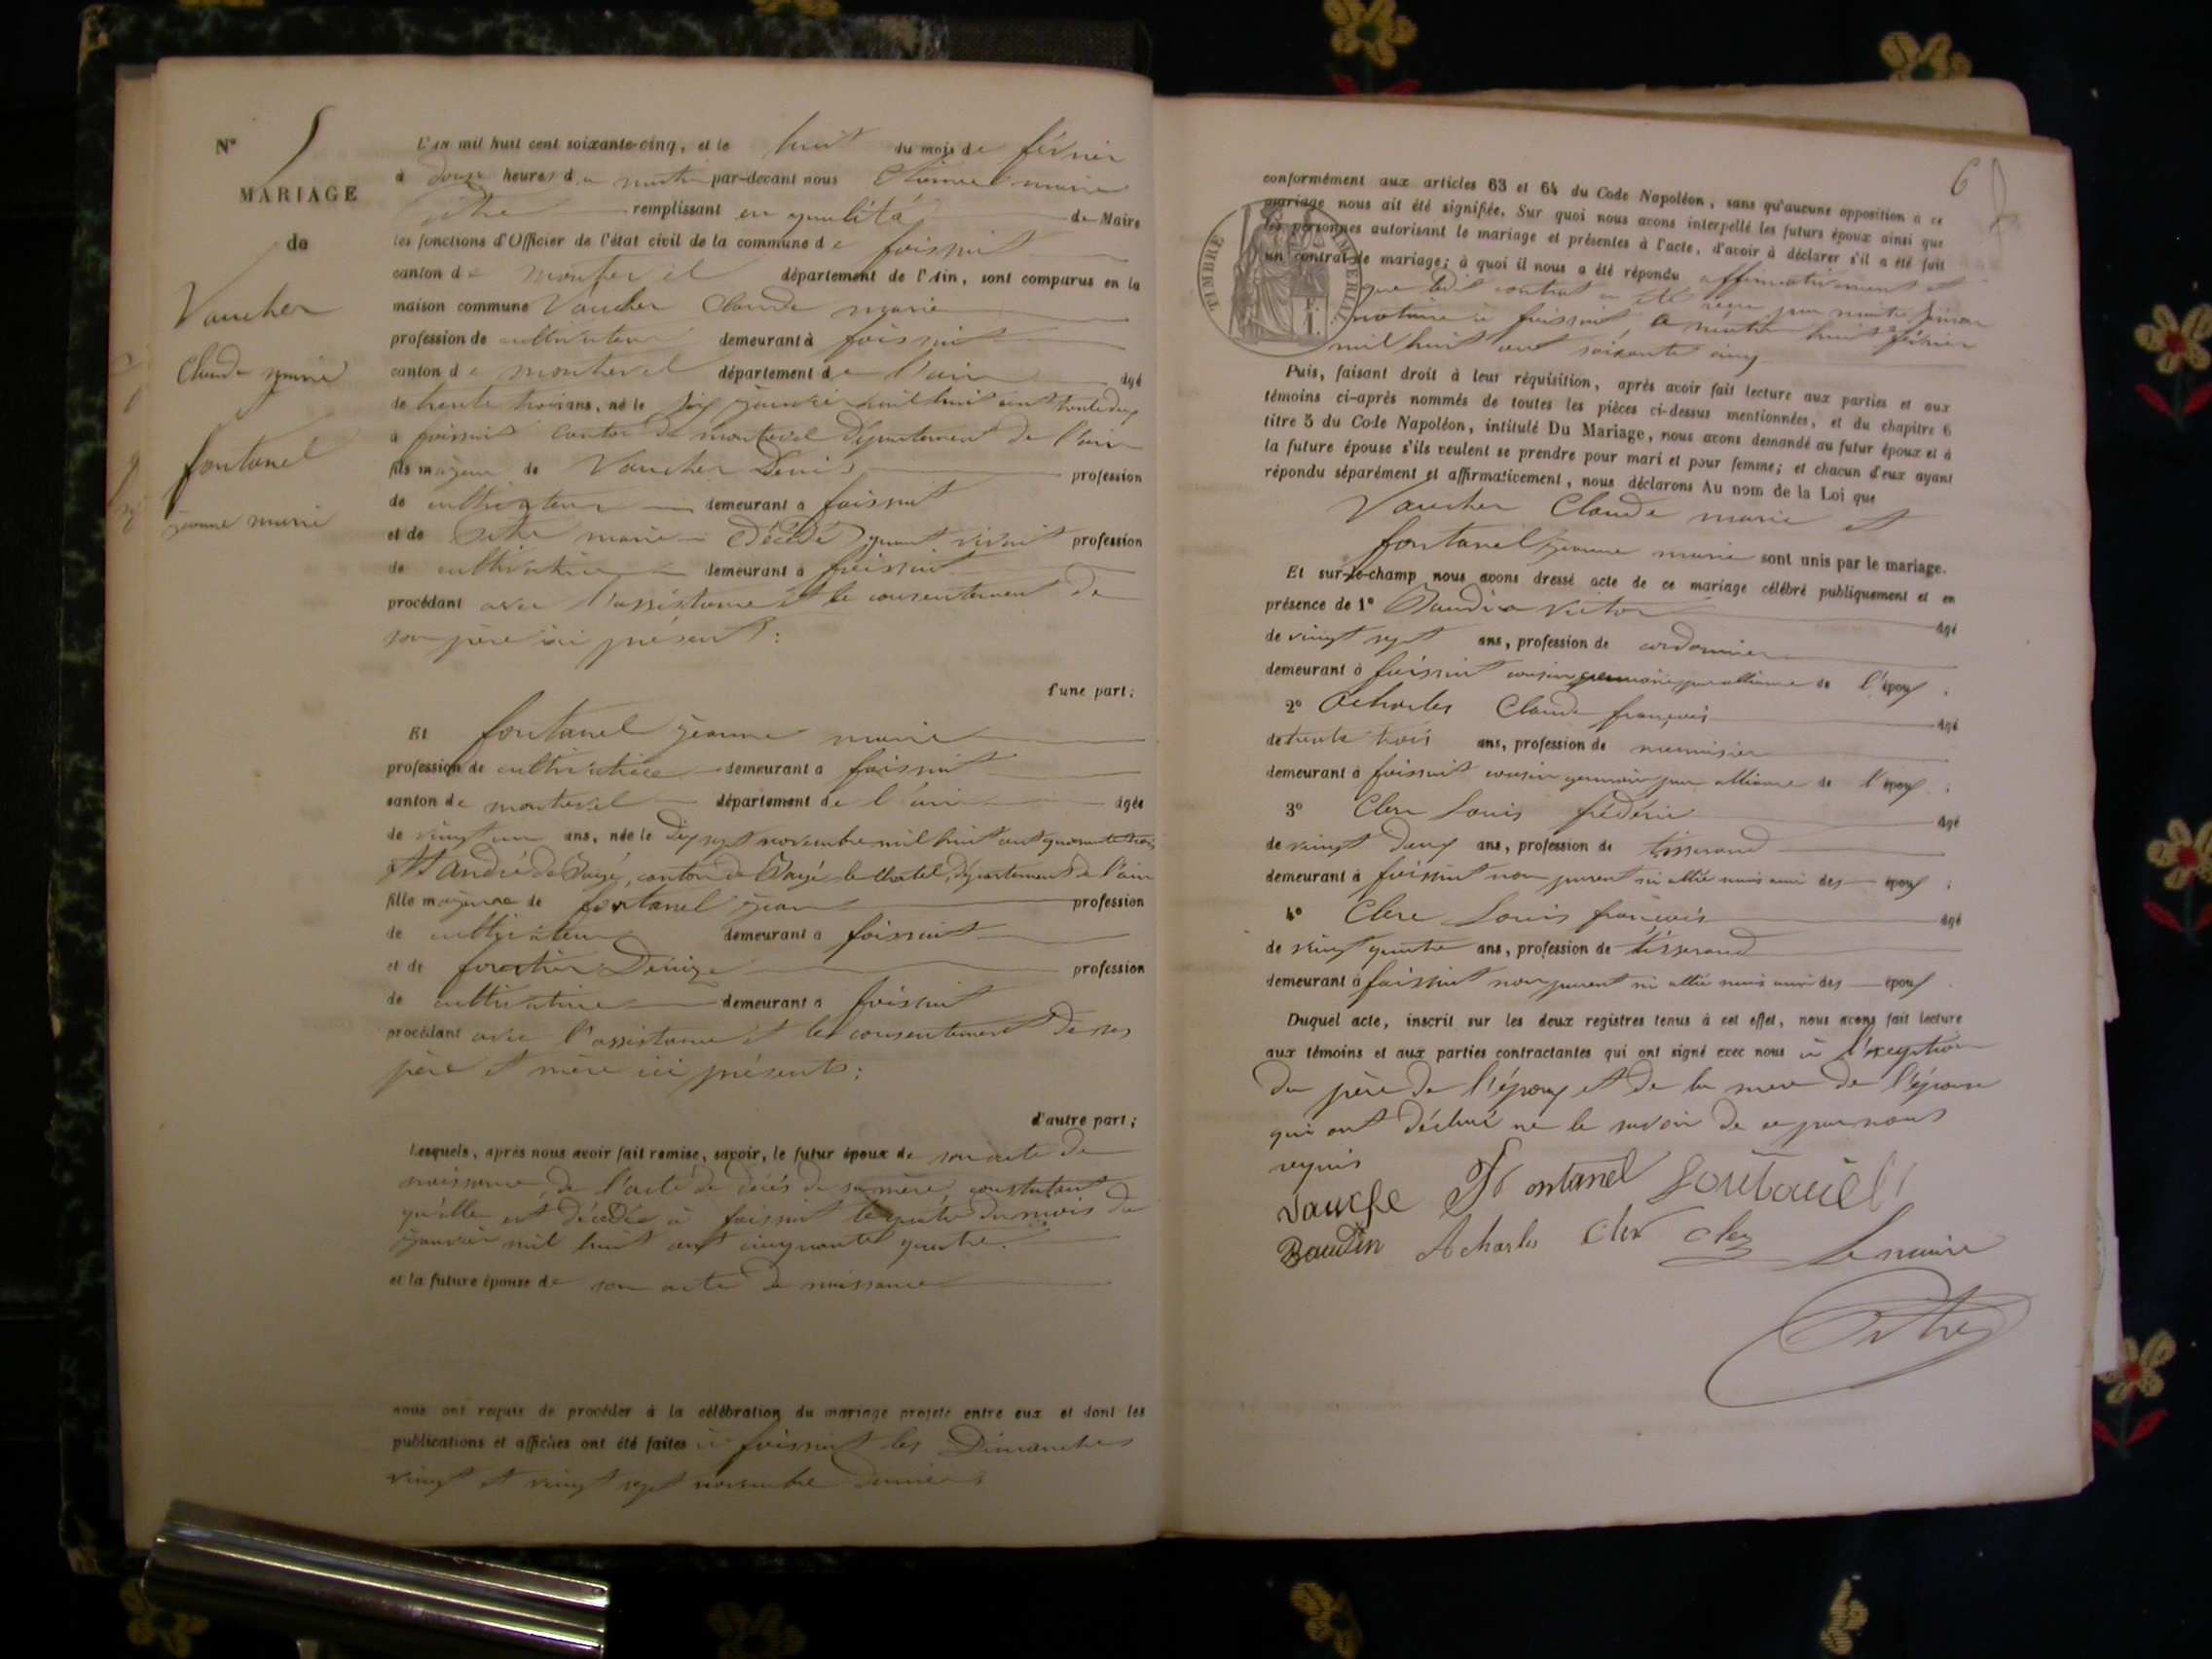 N° 5
MARIAGE
de
Vaucher
Claude marie
fontanel
jeanne marie
L'an mil huit cent soixante-cinq, et le huit du mois de février
à douze heures du matin par-devant nous Etienne marie
remplissant en qualité de Maire
les fonctions d'Officier de l'état civil de la commune de foissiat
canton de montrevel département de l'Ain, sont comparus en la
maison commune Vaucher Claude marie
profession de cultivateur demeurant à foissiat
canton de montrevel département de l'ain âgé
de trente trois ans, né le six janvier mil huit cent trente deux
à foissiat canton de montrevel département de l'ain
fils majeur de Vaucher Denis profession
de cultivateur demeurant à foissiat
et de marie décédé quant vivait profession
de cultivatrice demeurant à foissiat
procédant avec l'assistance et le consentement de
son père ici présent :
d'une part ;
Et fontanel jeanne marie
profession de cultivatrice demeurant à foissiat
canton de montrevel département de l'ain âgée
de vingt un ans, née le dix sept novembre mil huit cent quarante trois
à St andré de Bagé, canton de Bagé le chatel, département de l'ain
fille majeure de fontanel jean profession
de cultivateur demeurant à foissiat
et de forestier Denize profession
de cultivatrice demeurant à foissiat
procédant avec l'assistance et le consentement de ses
père et mère ici présents ;
d'autre part ;
Lesquels, après nous avoir fait remise, savoir, le futur époux de son acte de
naissance, de l'acte de décés de sa mère, constatant
qu'elle est décédée à foissiat le quatre du mois de
janvier mil huit cent cinquante quatre.
et la future épouse de son acte de naissance
nous ont requis de procéder à la célébration du mariage projeté entre eux et dont les
publications et affiches ont été faites à foissiat les Dimanches
vingt et vingt sept novembre derniers
6
conformément aux articles 63 et 64 du Code Napoléon, sans qu'aucune opposition à ce
mariage nous ait été signifiée. Sur quoi nous avons interpellé les futurs époux ainsi que
les personnes autorisant le mariage et présentes à l'acte, d'avoir à déclarer s'il a été fait
un contrat de mariage ; à quoi il nous a été répondu affirmativement et
que ledit contrat a été reçu par maitre
notaire à foissiat, ce matin huit février
mil huit cent soixante cinq
TIMBRE IMPERIAL
F.
1.
Puis, faisant droit à leur réquisition, après avoir fait lecture aux parties et aux
témoins ci-après nommés de toutes les pièces ci-dessus mentionnées, et du chapitre 6
titre 5 du Code Napoléon, intitulé Du Mariage, nous avons demandé au futur époux et à
la future épouse s'ils veulent se prendre pour mari et pour femme ; et chacun d'eux ayant
répondu séparément et affirmativement, nous déclarons Au nom de la Loi que
Vaucher Claude marie et
fontanel jeanne marie sont unis par le mariage.
Et sur-le-champ nous avons dressé acte de ce mariage célébré publiquement et en
présence de 1° Baudin Victor âgé
de vingt sept ans, profession de cordonnier
demeurant à foissiat cousin germain par alliance de l'époux ;
2° Acharles Claude françois âgé
de trente trois ans, profession de menuisier
demeurant à foissiat cousin germain par alliance de l'époux ;
3° Clerc Louis frédéric âgé
de vingt deux ans, profession de tisserand
demeurant à foissiat non parent ni allié mais ami des époux ;
4° Clerc Louis françois âgé
de vingt quatre ans, profession de tisserand
demeurant à foissiat non parent ni allié mais ami des époux
Duquel acte, inscrit sur les deux registres tenus à cet effet, nous avons fait lecture
aux témoins et aux parties contractantes qui ont signé avec nous à l'exception
du père de l'époux et de la mere de l'épouse
qui ont déclaré ne le savoir de ce par nous
requis
Vauche Fontanel
Baudin Acharles Clerc Clerc Le maire